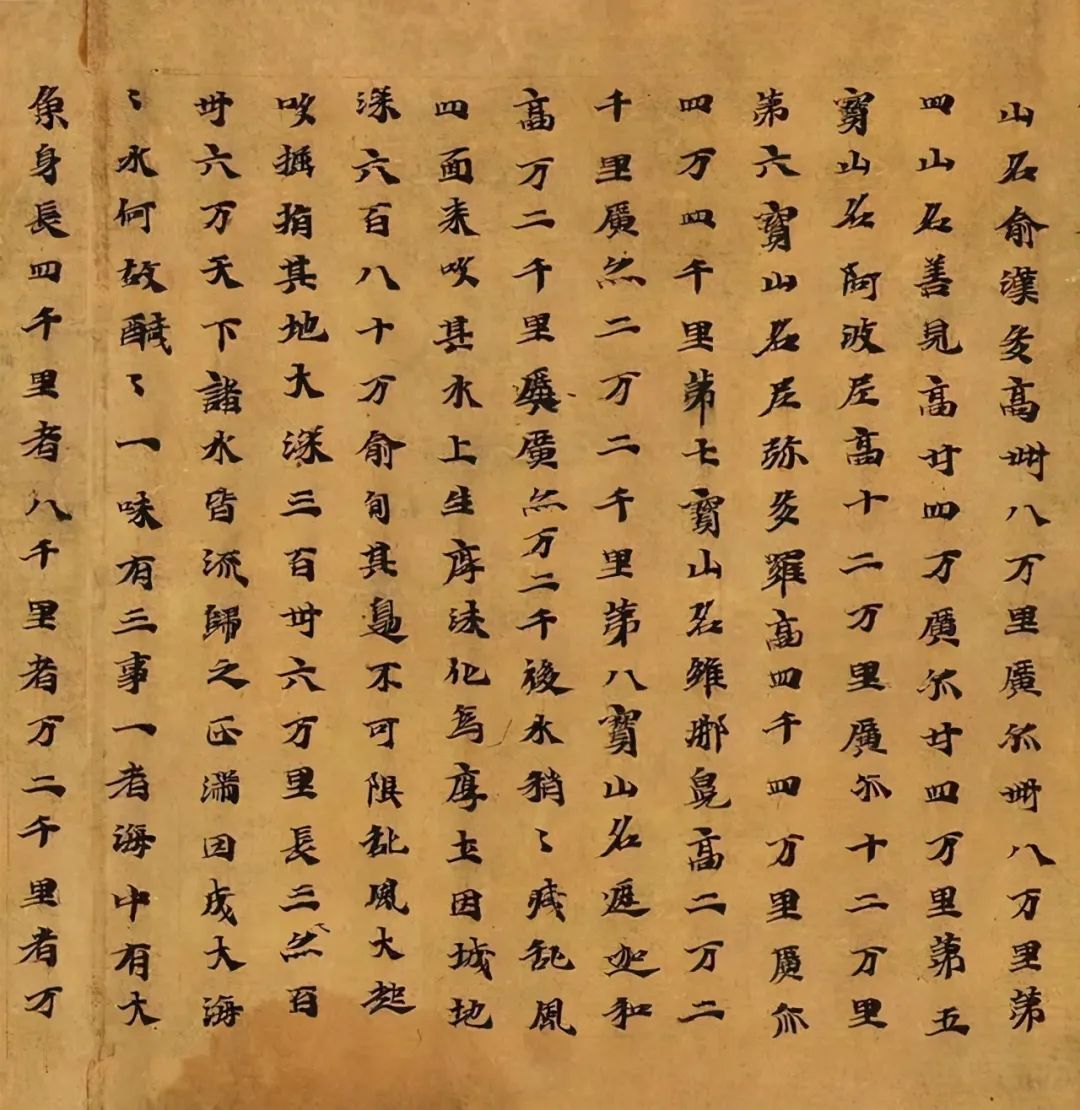 山名俞漢多高卌八万里廣尒卌八万里第
四山名善見高廿四万廣尒廿四万里第五
寶山名阿波尼高十二万里廣尒十二万里
第六寶山名尼弥多羅高四千四万里廣尒
四万四千里第七寶山名維那兜高二万二
千里廣亦二万二千里第八寶山名遮迦和
高万二千里廣亦万二千後水稍〻減乱風
四面来吹其水上生厚沫化為厚土因城地
深六百八十万俞旬其邊不可限乱風大起
吹掘捐其地大深三百卅六万里長三然百
卅六万天下諸水皆流歸之正滿因成大海
〻水何故醎〻一味有三事一者海中有大
魚身長四千里者八千里者万二千里者万